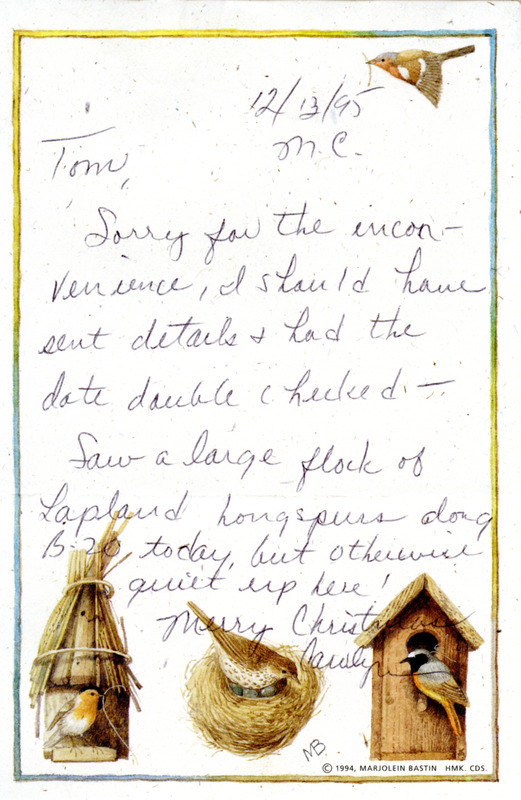 12/13/95
M.C.
Tom,
Sorry for the incon-
venience, I should have
sent details & had the
date double checked —
Saw a large flock of
Lapland longspurs along
B-20 today, but otherwise
quiet up here!
Merry Christmas
Carolyn
MB
© 1994, MARJOLEIN BASTIN HMK. CDS.